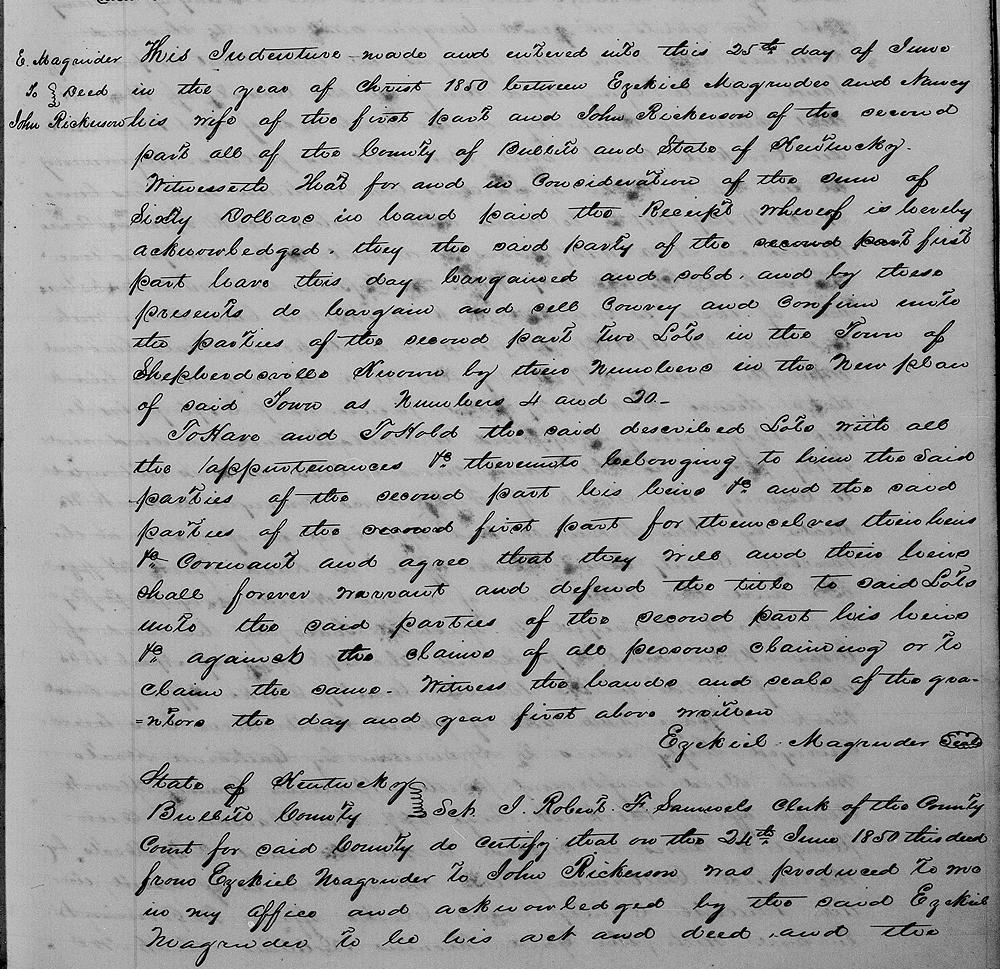 E. Magruder
To } Deed
John Rickerson
This Indenture made and entered into this 25th day of June
in the year of Christ 1850 between Ezekiel Magruder and Nancy
his wife of the first part and John Rickerson of the second
part all of the County of Bullitt and State of Kentucky.
Witnesseth That for and in Consideration of the sum of
Sixty Dollars in hand paid the Receipt whereof is hereby
acknowledged. they the said party of the second part first
part have this day bargained and sold. and by these
presents do bargain and sell Convey and Confirm unto
the parties of the second part two Lots in the Town of
Shepherdsville Known by their Numbers in the New plan
of said Town as Numbers 4 and 20-
To Have and To Hold the said described Lots with all
the appurtenances &c thereunto belonging to him the said
parties of the second part his heirs &c and the said
parties of the second first part for themselves their heirs
&c Covenant and agree that they will and their heirs
shall forever warrant and defend the title to said Lots
unto the said parties of the second part his heirs
&c against the claims of all persons claiming or to
claim the same. Witness the hands and seals of the gra-
=ntors the day and year first above written
Ezekiel Magruder Seal
State of Kentucky
Bullitt County } Sct. I. Robert. F. Samuels Clerk of the County
Court for said County do certify that on the 24th June 1850 this deed
from Ezekiel Magruder to John Rickerson was produced to me
in my office and acknowledged by the said Ezekiel
Magruder to be his act and deed. and the